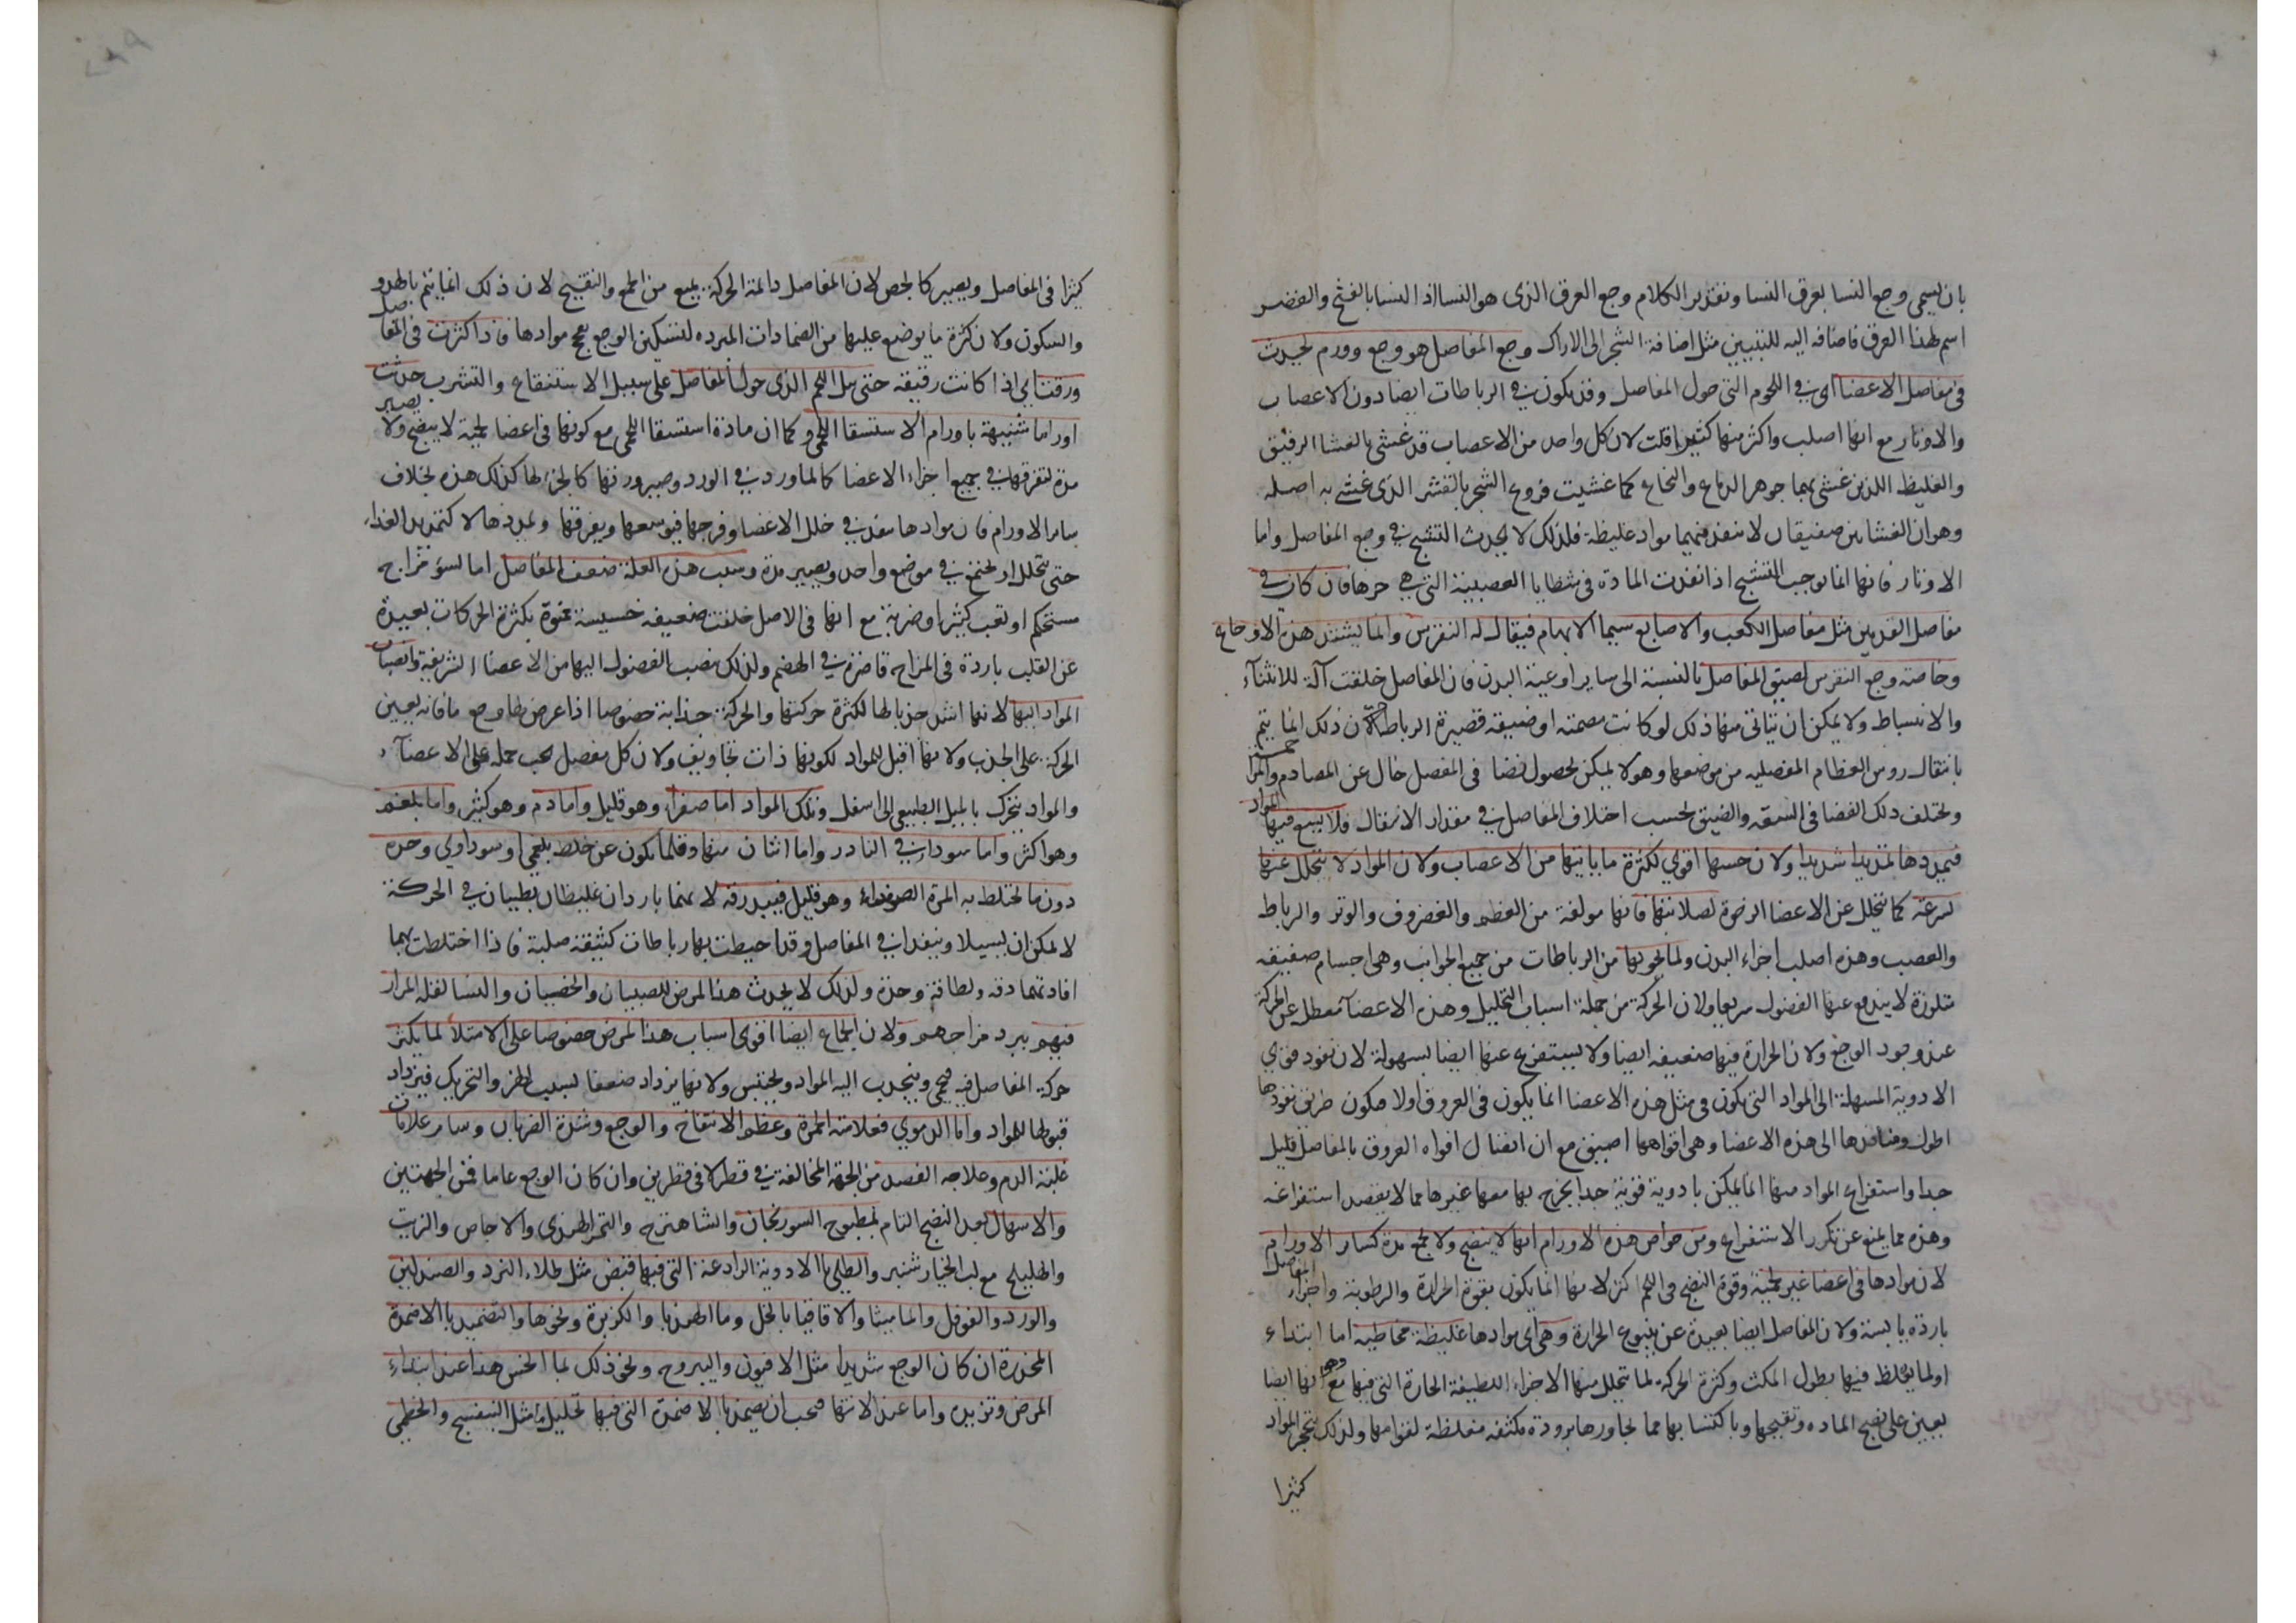 بان يسمى وجع النسا بعرق النسا وتقدير الكلام وجع العرق الذى هو النسا اذ النسا بالفتح والقصر
اسم لهذا العرق فاضافه اليه للتبيين مثل اضافة الشجر الى الاراك وجع المفاصل هو وجع وورم يحدث
فى مفاصل الاعضا اى فى اللحوم التى حول المفاصل وقد يكون فى الرباطات ايضا دون الاعصاب
والاوتار مع انها اصلب واكثر منها كثيرا قلت لان كل واحد من الاعصاب قد غشى بالغشا الرقيق
والغليظ اللذين غشى بهما جوهر الدماغ والنخاع كما غشيت فروع الشجر بالقشر الذى غشى به اصله
وهوان الغشاين صفيقان لا ينفذ فيهما مواد غليظة فلذلك لا يحدث التشنج فى وجع المفاصل واما
الاوتار فانها انما يوجب التشنج اذا نفذت المادة فى شظايا العصبية التى هى جزها فان كان فى
مفاصل القدمين مثل مفاصل الكعب والاصابع سيما الابهام فيقال له النقرس وانما يشتد هذه الاوجاع
وخاصة وجع النقرس لضيق المفاصل بالنسبة الى ساير اوعية البدن فان المفاصل خلقت آلة للانثناء
والانبساط ولا يمكن ان يتاتى منها ذلك لو كانت مصمتة او ضيقه قصيرة الرباط لان ذلك انما يتم
بانتقال روس العظام المفصليه من موضعها وهو لا يمكن الا بحصول فضا فى المفصل خال عن المصادم والمزاحم
ويختلف ذلك الفضا فى السعة والضيق بحسب اختلاف المفاصل فى مقدار الانتقال فلا يسع فيها المواد
فيمددها تمديدا شديدا ولان حسها اقوى لكثرة ما ياتيها من الاعصاب ولان المواد لا يتحلل عنها
بسرعة كما يتحلل عن الاعضا الرخوة لصلابتها فانها مولفة من العظم والغضروف والوتر والرباط
والعصب وهذه اصلب اجزاء البدن ولما يحويها من الرباطات من جميع الجوانب وهى اجسام صفيقه
متلززة لا يندفع عنها الفضول سريعا ولان الحركة من جملة اسباب التحليل وهذه الاعضآ معطل عن الحركة
عند وجود الوجع ولان الحرارة فيها ضعيفه ايضا ولا يستفرغ عنها ايضا بسهولة لان نفوذ قوى
الادوية المسهلة الى المواد التى يكون فى مثل هذه الاعضا انما يكون فى العروق اولا فيكون طريق نفوذها
اطول ومنافذها الى هذه الاعضا وهى افواهها اضيق مع ان اتصال افواه العروق بالمفاصل قليل
جدا واستفراغ المواد منها انما يمكن بادوية قوية جدا يخرج بها معها غيرها مما لا يقصد استفراغه
وهذه مما يمنع عن تكرر الاستفراغ ومن خواص هذه الاورام انها لا ينضج ولا يجمع مدة كساير الاورام
لان موادها فى اعضا غير لحمية وقوة النضج فى اللحم اكثر لانها انما يكون بقوة الحرارة والرطوبة واجزاء المفاصل
باردة يابسة ولان المفاصل ايضا بعيدة عن ينبوع الحرارة وهى اى موادها غليظة مخاطيه اما ابتداء
او لما يغلظ فيها بطول المكث وكثرة الحركه لما تتحلل منها الاجزاء اللطيفة الحارة التى فيها مع وهى انها ايضا
يعين على نضج الماده وتقيحها وباكتسابها مما يجاورها برودة مكثفه مغلظة لقوامها ولذلك يتحجر المواد
كثيرا
كثيرا فى المفاصل ويصير كالجص لان المفاصل دائمة الحركة يمنع من الجمع والتقيح لان ذلك انما يتم بالهدو
والسكون ولان كثرة ما يوضع عليها من الضمادات المبرده لتسكين الوجع يفجج موادها فاذا كثرت فى المفاصل
ورقت اى اذا كانت رقيقه حتى بل اللحم الذى حول المفاصل على سبيل الاستنقاع والتشرب حدثت
اوراما شبيهة باورام الاستسقا اللحمى وكما ان مادة استسقا اللحمى مع كونها فى اعضا لحمية لا ينضج ولا يصير
مدة لتفرقها فى جميع اجزاء الاعضا كالماورد فى الورد وصيرورتها كالجزء لها كذلك هذه بخلاف
ساير الاورام فان موادها ينفذ فى خلل الاعضا وفرجها فيوسعها ويفرقها ويمددها لا كتمديد الغذاء
حتى يتحلل او يجتمع فى موضع واحد ويصير مدة وسبب هذه العلة ضعف المفاصل اما لسوء مزاج
مستحكم او تعب كثير او ضربة مع انها فى الاصل خلقت ضعيفه خسيسة ممنوة بكثرة الحركات بعيدة
عن القلب باردة فى المزاج قاصرة فى الهضم ولذلك ينصب الفضول اليها من الاعضا الشريفة وانصباب
المواد اليها لانها اشد جذبا لها لكثرة حركتها والحركة جذابة خصوصا اذا عرض لها وجع فانه يعين
الحركة على الجذب ولانها اقبل للمواد لكونها ذات تجاويف ولان كل مفصل يجب حمله على الاعضآ
والمواد يتحرك بالميل الطبيعى الى اسفل وتلك المواد اما صفراء وهو قليل واما دم وهو كثير واما بلغم
وهو اكثر واما سوداء فى النادر واما اثنان منها وقلما يكون عن خلط بلغمى او سوداوى وحده
دون ما يختلط به المرة الصفراء وهو قليل فيبدرقه لانهما باردان غليظان بطيان فى الحركة
لا يمكن ان يسيلا وينفذا فى المفاصل وقد احيطت بها رباطات كثيفة صلبة فاذا اختلطت بهما
افادتهما دقه ولطافة وحدة ولذلك لا يحدث هذا المرض للصبيان والخصيان والنسا لقلة المرار
فيهم ببرد مزاجهم ولان الجماع ايضا اقوى اسباب هذا المرض خصوصا على الامتلاء لما يكثر
حركة المفاصل فيه فيحمى وينجذب اليه المواد ويحتبس ولانها يزداد ضعفا بسبب الهز والتحريك فيزداد
قبولها للمواد واما الدموى فعلامته الحمرة وعظم الانتفاخ والوجع وشدة الضربان وساير علامات
غلبة الدم وعلاجه الفصد من الجهة المخالفة فى قطر لا فى قطرين وان كان الوجع عاما فمن الجهتين
والاسهال بعد النضج التام بمطبوخ السورنجان والشاهترج والتمر الهندى والاجاص والزبيب
والهليلج مع لب الخيار شنبر والطلى بالادوية الرادعة التى فيها قبض مثل طلاء النرد والصندلين
والورد والفوفل والماميثا والاقاقيا بالخل وما الهندبا والكزبرة ونحوها والتضميد بالاضمدة
المخدرة ان كان الوجع شديدا مثل الافيون واليبروح ونحو ذلك لما الحس هذا عند ابتداء
المرض وتزيده واما عند الانتها فيجب ان يضمد بالاضمدة التى فيها تحليل مثل البنفسج والخطمى